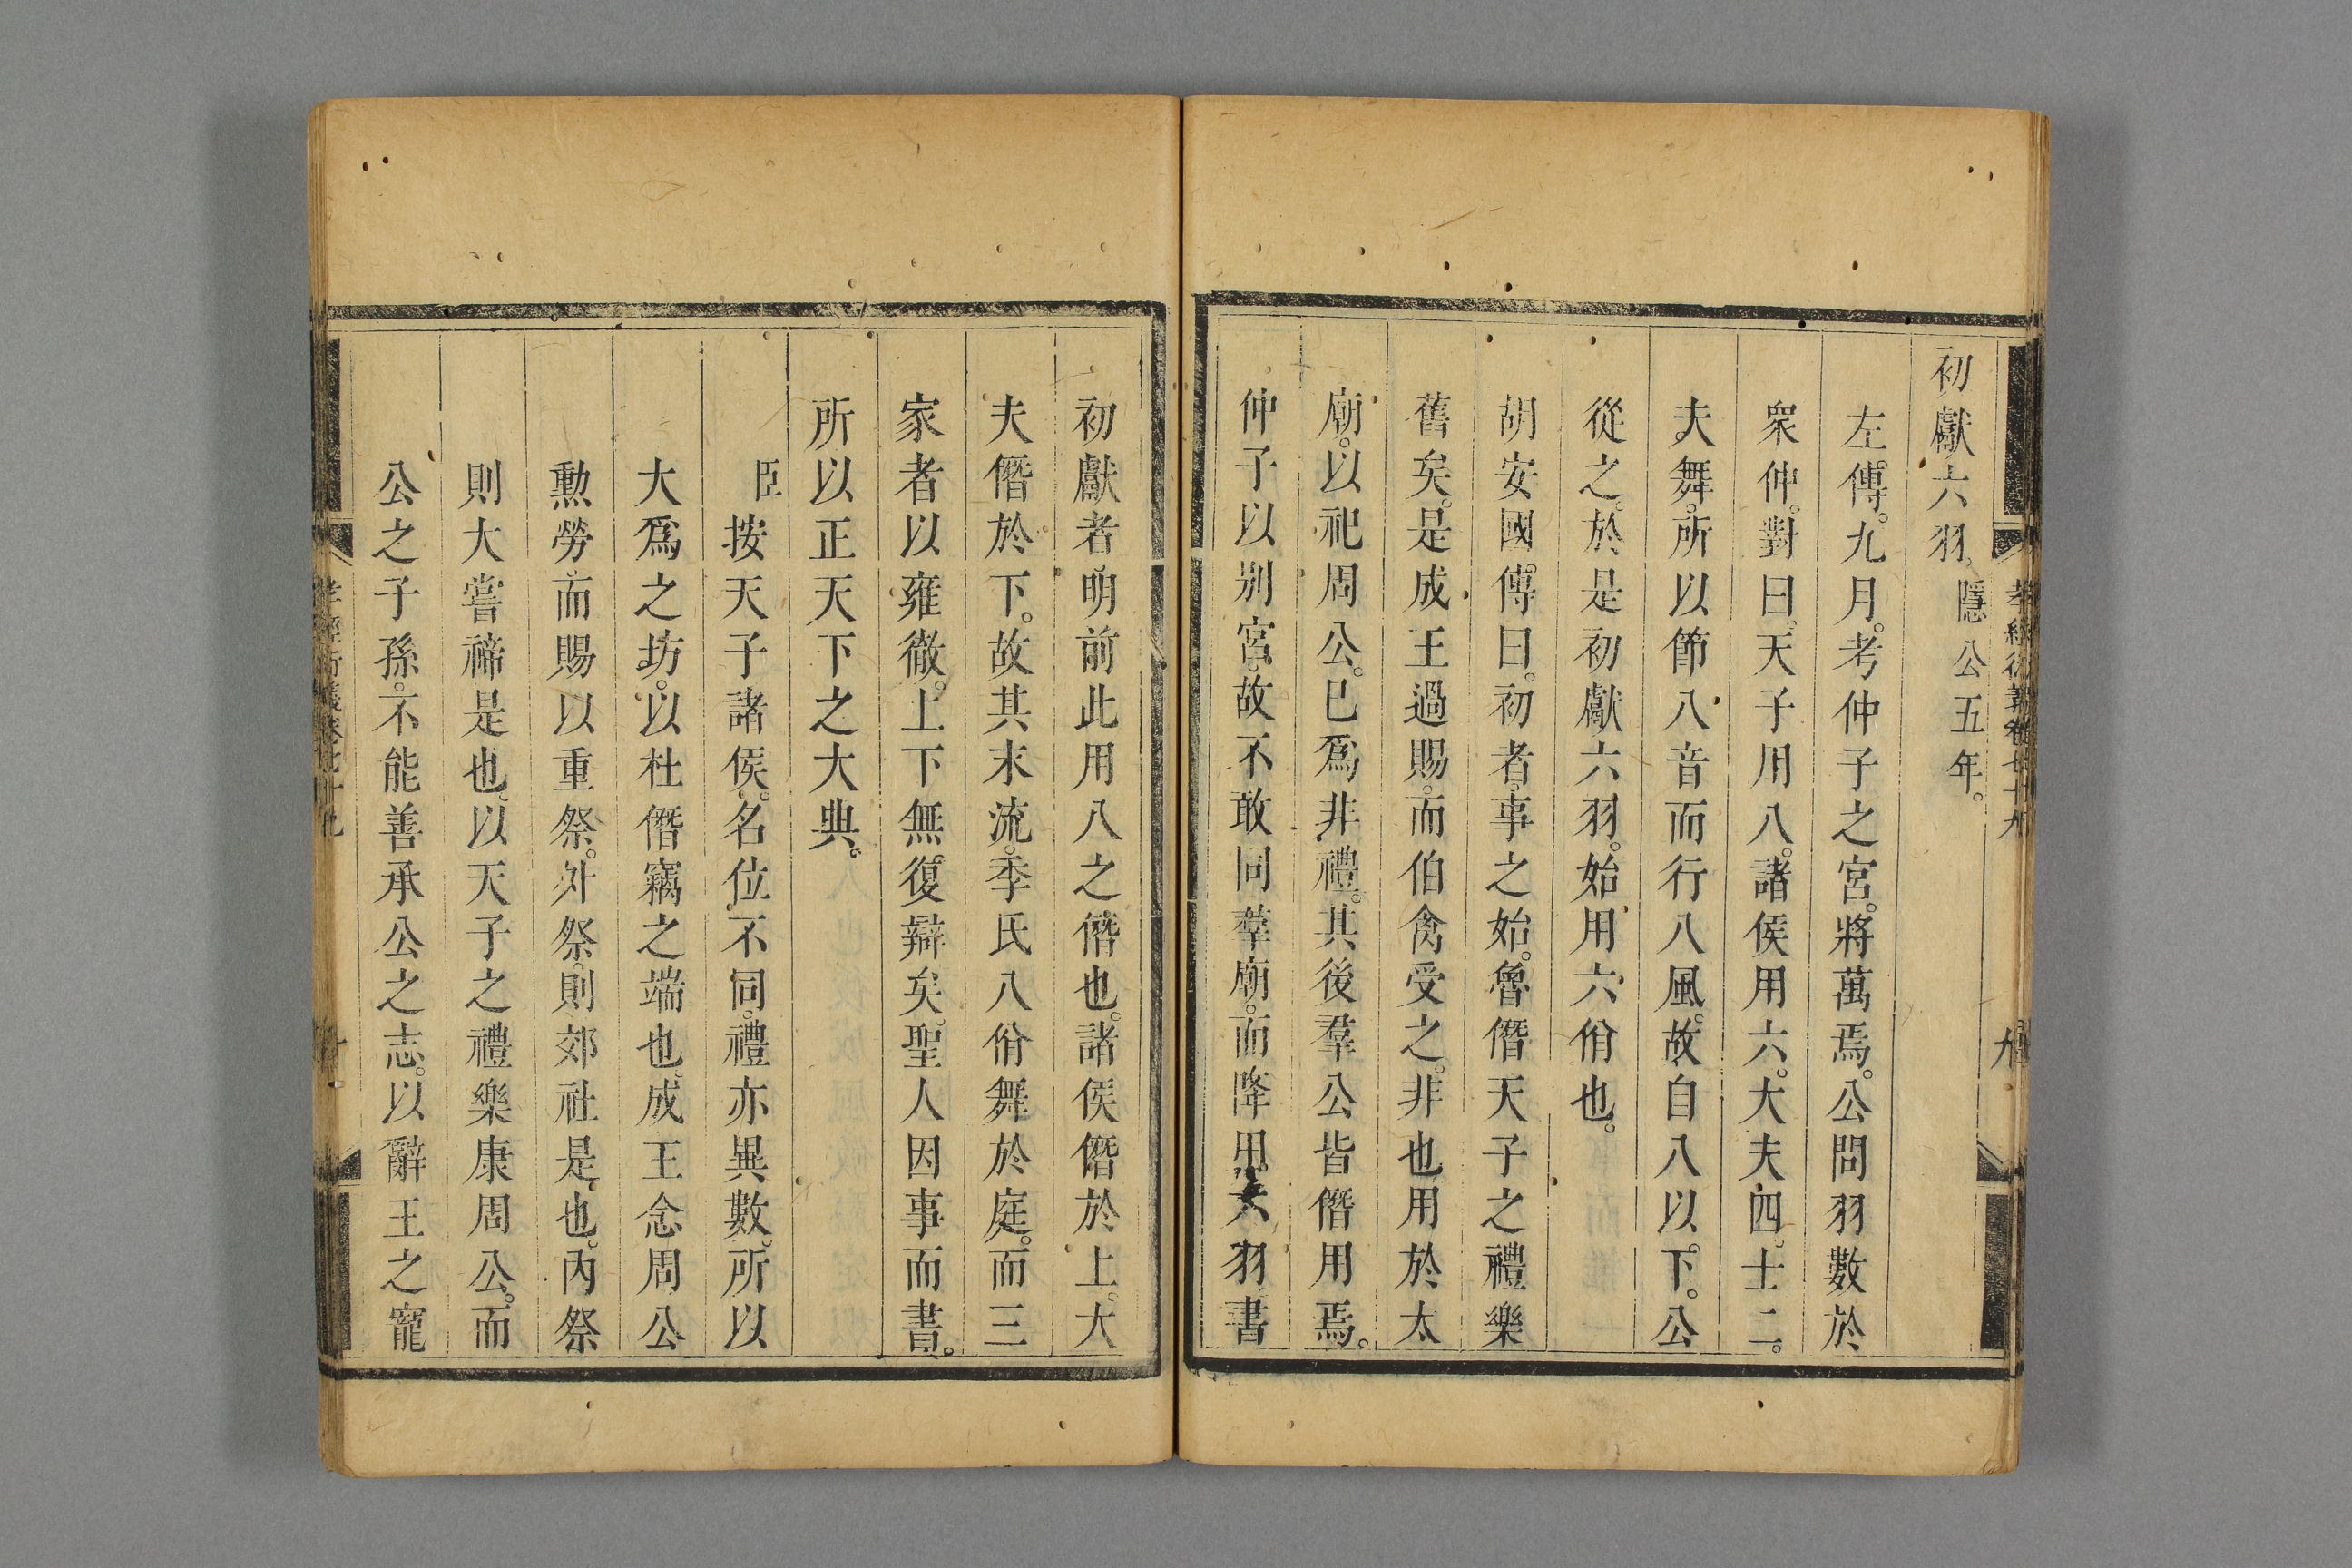 初獻六羽隱公五年。
左傳。九月。考仲子之宮。將萬焉。公問羽數於
衆仲。對曰。天子用八。諸侯用六。大夫四。士二。
夫舞。所以節八音而行八風。故自八以下。公
從之。於是初獻六羽。始用六佾也。
胡安國傳曰。初者。事之始。魯僭天子之禮樂
舊矣。是成王過賜。而伯禽受之。非也。用於太
廟。以祀周公。已爲非禮。其後羣公皆僭用焉。
仲子以別宮。故不敢同羣廟。而降用六羽。書
初獻者。明前此用八之僭也。諸侯僭於上。大
夫僭於下。故其末流。季氏八佾舞於庭。而三
家者以雍徹。上下無復辯矣。聖人因事而書。
所以正天下之大典。
臣按天子諸侯。名位不同。禮亦異數。所以
大爲之坊。以杜僭竊之端也。成王念周公
勳勞。而賜以重祭。外祭。則郊社是也。內祭
則大嘗禘是也。以天子之禮樂康周公。而
公之子孫。不能善承公之志。以辭王之寵
孝經衍義卷七十九
九